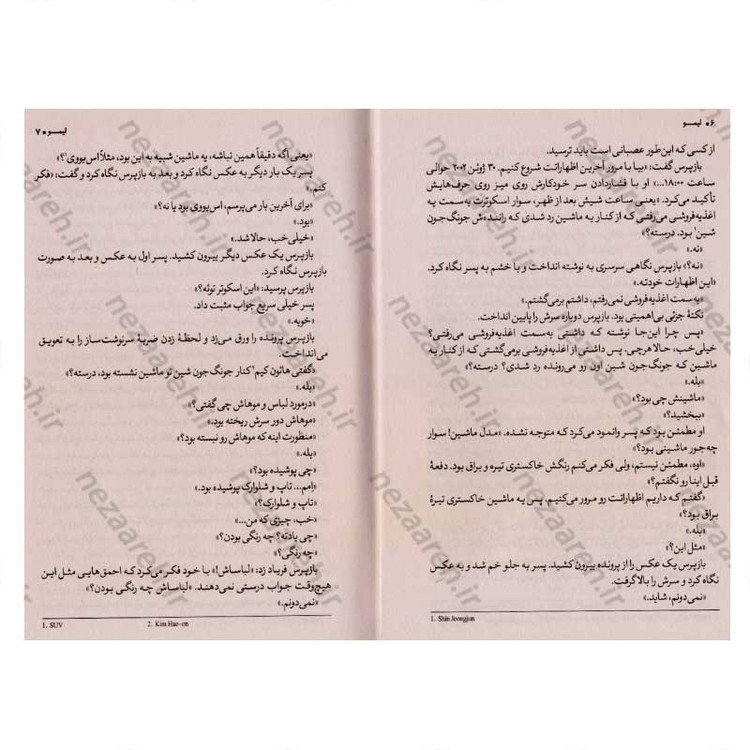 ۶ ■ لیمـــو
از کسی که این‌طور عصبانی است باید ترسید.
بازپرس گفت: «بیا با مرور آخرین اظهاراتت شروع کنیم. ۳۰ ژوئن ۲۰۰۲ حوالی
ساعت ۱۸:۰۰...» او با فشاردادن سر خودکارش روی میز روی حرف‌هایش
تأکید می‌کرد. «یعنی ساعت شیش بعد از ظهر، سوار اسکوترت به‌سمت یه
اغذیه‌فروشی می‌رفتی که از کنار یه ماشین رد شدی که راننده‌ش جونگ‌جون
شین¹ بود. درسته؟»
«نه.»
«نه؟» بازپرس نگاهی سرسری به نوشته انداخت و با خشم به پسر نگاه کرد.
«این اظهارات خودته.»
«به‌سمت اغذیه‌فروشی نمی‌رفتم، داشتم برمی‌گشتم.»
نکتهٔ جزئی بی‌اهمیتی بود. بازپرس دوباره سرش را پایین انداخت.
«پس چرا این‌جا نوشته که داشتی به‌سمت اغذیه‌فروشی می‌رفتی؟
خیلی‌خب، حالا هرچی. پس داشتی از اغذیه‌فروشی برمی‌گشتی که از کنار یه
ماشین که جونگ‌جون شین اون رو می‌رونده رد شدی؟ درسته؟»
«بله.»
«ماشینش چی بود؟»
«ببخشید؟»
او مطمئن بود که پسر وانمود می‌کرد که متوجه نشده. «مدل ماشین! سوار
چه‌جور ماشینی بود؟»
«اوه، مطمئن نیستم، ولی فکر می‌کنم رنگش خاکستری تیره و براق بود. دفعهٔ
قبل اینا رو نگفتم؟»
«گفتم که داریم اظهاراتت رو مرور می‌کنیم. پس یه ماشین خاکستری تیرهٔ
براق بود؟»
«بله.»
«مثل این؟»
بازپرس یک عکس را از پرونده بیرون کشید. پسر به جلو خم شد و به عکس
نگاه کرد و سرش را بالا گرفت.
«نمی‌دونم، شاید.»
1. Shin Jeongjun
لیمـــو ■ ۷
«یعنی اگه دقیقاً همین نباشه، یه ماشین شبیه به این بود، مثلاً اس‌یووی¹؟»
پسر یک بار دیگر به عکس نگاه کرد و بعد به بازپرس نگاه کرد و گفت: «فکر
کنم.»
«برای آخرین بار می‌پرسم، اس‌یووی بود یا نه؟»
«بود.»
«خیلی‌خب، حالا شد.»
بازپرس یک عکس دیگر بیرون کشید. پسر اول به عکس و بعد به صورت
بازپرس نگاه کرد.
بازپرس پرسید: «این اسکوتر توئه؟»
پسر خیلی سریع جواب مثبت داد.
«خوبه.»
بازپرس پرونده را ورق می‌زد و لحظهٔ زدن ضربهٔ سرنوشت‌ساز را به تعویق
می‌انداخت.
«گفتی هائون کیم² کنار جونگ‌جون شین تو ماشین نشسته بود، درسته؟»
«بله.»
«درمورد لباس و موهاش چی گفتی؟»
«موهاش دور سرش ریخته بود.»
«منظورت اینه که موهاش رو نبسته بود؟»
«بله.»
«چی پوشیده بود؟»
«اِمم... تاپ و شلوارک پوشیده بود.»
«تاپ و شلوارک؟»
«خب، چیزی که من...»
«چی یادته؟ چه رنگی بودن؟»
«چه رنگی؟»
بازپرس فریاد زد: «لباساش!» با خود فکر می‌کرد که احمق‌هایی مثل این
هیچ‌وقت جواب درستی نمی‌دهند. «لباساش چه رنگی بودن؟»
«نمی‌دونم.»
1. SUV
2. Kim Hae-on
nezaareh.ir